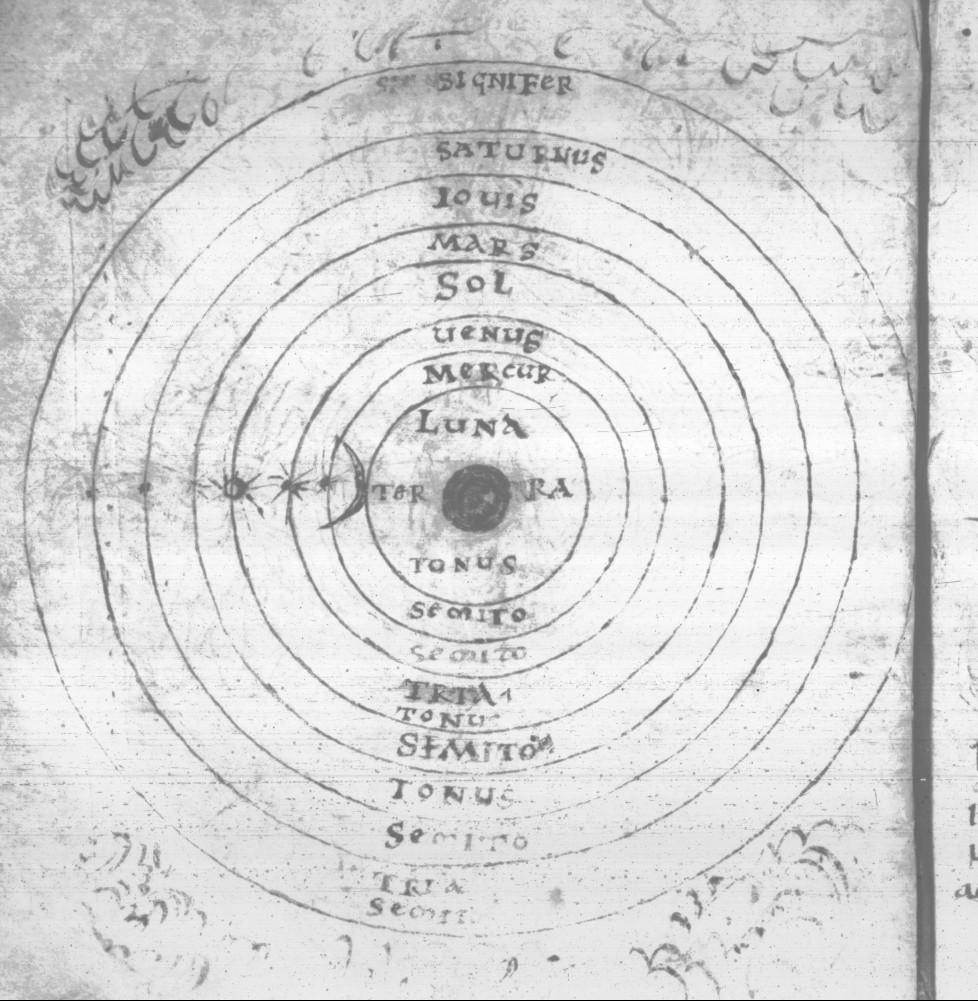 SIGNIFER
SATURNUS
IOUIS
MARS
SOL
UENUS
MERCUR
LUNA
TER RA
TONUS
SEMITO
SEMITO
TRIA
TONUS
SEMITO
TONUS
SEMITO
TRIA
SEMIT